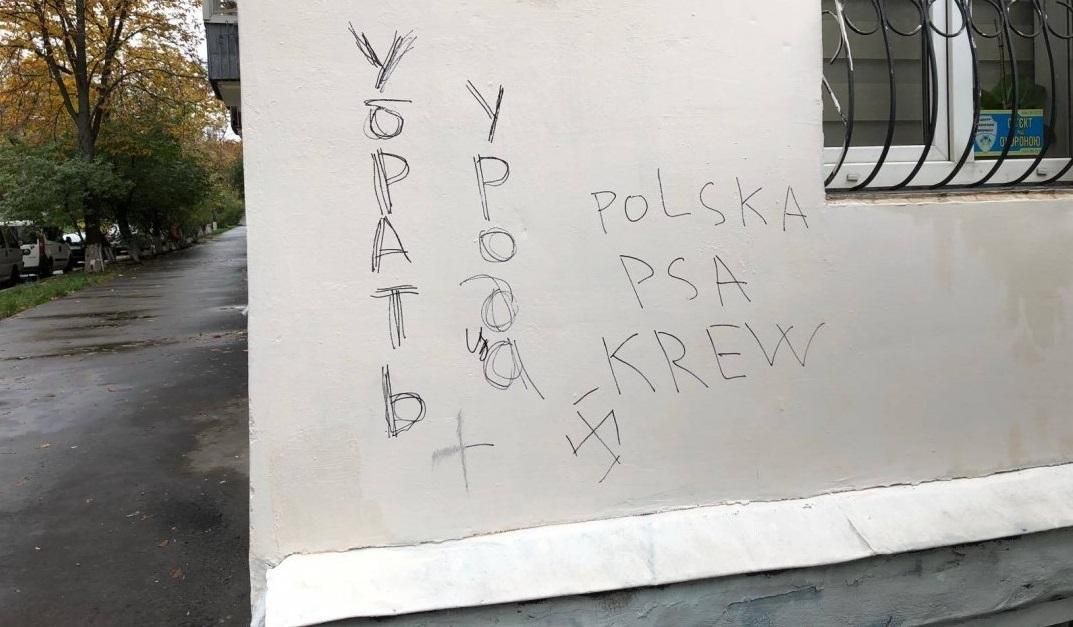 УбРАТЬ
Урода
POLSKA
PSA
KREW
ОХОРОНОЮ